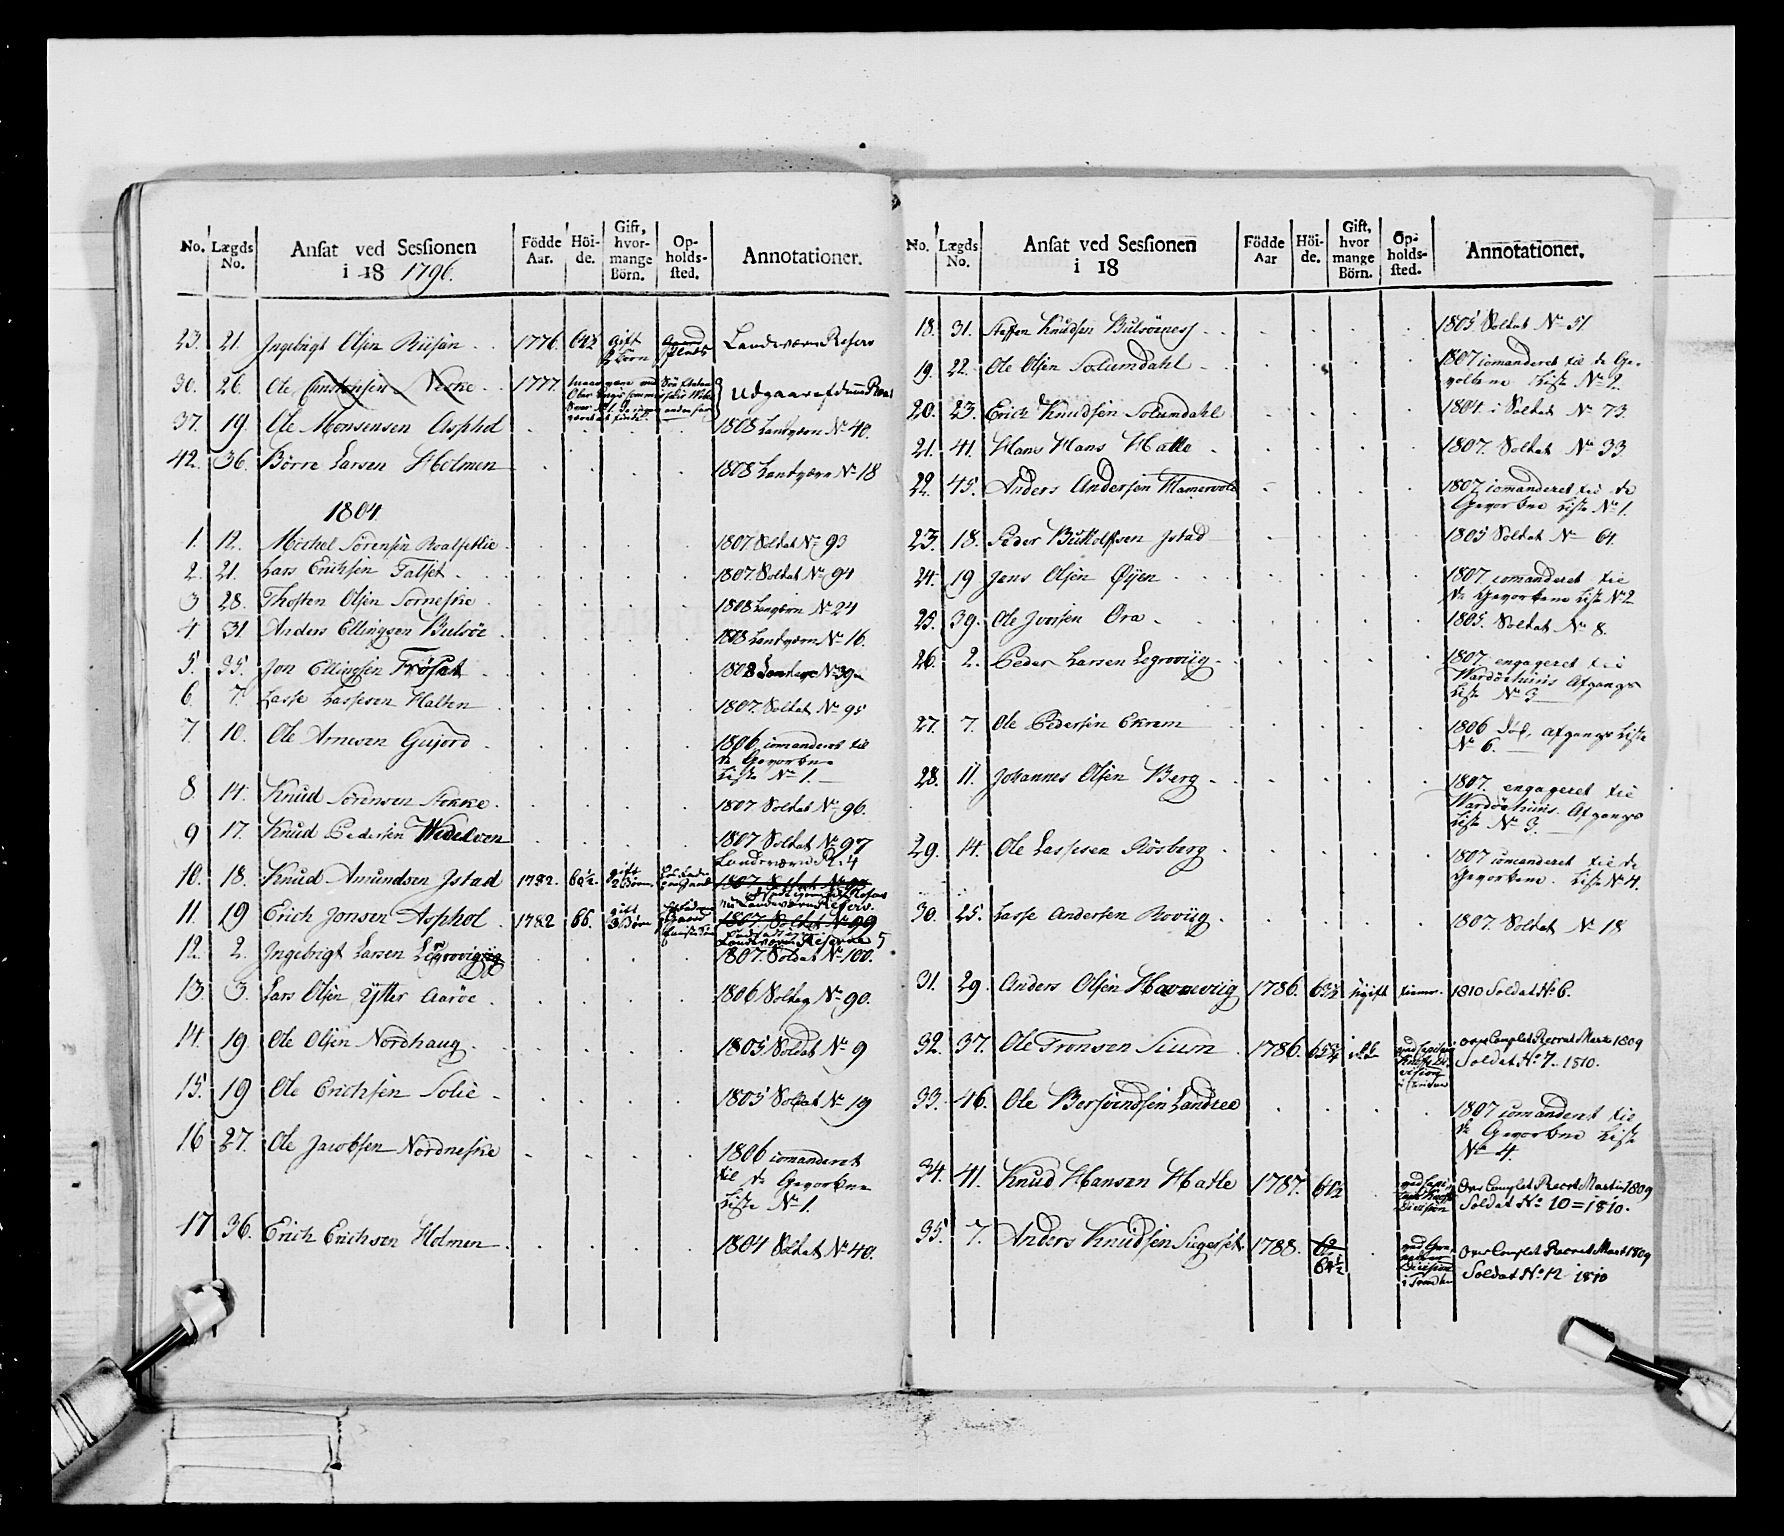 No. Lægds No. Ansat ved Sessionen i 18 1796. Födde Aar. Höi-de. Gift, hvor-mange Börn. Op-holds-sted. Annotationer.
23. 21. Ingebrigt Olsen Riisen 1776. 64½ gift Börn Landeværn Reserv
30. 26. Ole Carstensen Nerke 1777.
37. 19. Ole Monsensen Asphol 1808 Landværn No 40.
42. 36. Börre Larsen Holmen 1808 Landværn No 18
1804
1. 12. Michel Sörensen Roalsetlie 1807 Soldat No 93
2. 21. Lars Erichsen Falset 1807. Soldat No 94
3 28. Thosten Olsen Sorneske 1808 Langværn No 24
4 31 Anders Ellingsen Bulsöe 1808 Landværn No 16.
5. 35. Jon Ellingsen Fröset 1808 No 39
6. 7. Lasse Lassesen Halten 1807. Soldat No 95
7. 10. Ole Arnesen Gujord 1806 comanderet til
de Gevorbne
Liste No 1.
8. 14. Knud Sörensen Stokke 1807 Soldat No 96.
9 17. Knud Pedersen Wedelven 1807 Soldat No 97
10. 18. Knud Amundsen Istad 1782. 60½ gift 2 Börn Landeværn R. 4
1807 Soldat No
11. 19 Erich Jonsen Asphol 1782 66. gift Börn 1807. Soldat No 99
Landeværn Reserve 5
12. 2. Ingebrigt Larsen Legrovig 1807. Soldat No 100.
13. 3. Lars Olsen Ytter Aaröe 1806 Soldat No 90.
14. 19. Ole Olsen Nordhaug 1805 Soldat No 9
15. 19 Ole Erichsen Solie 1805 Soldat No 19
16 27. Ole Jacobsen Nordneske 1806 comanderet
til de Gevorbne
Liste No 1.
17 36. Erich Erichsen Holmen 1804 Soldat No 40.
No. Lægds No. Ansat ved Sessionen i 18 Födde Aar Höi-de. Gift, hvor mange Börn. Op-holds-sted. Annotationer.
18. 31. Steffen Knudsen Bulsöenes 1805. Soldat No 51
19. 22. Ole Olsen Solumdahl 1807 comanderet til de Ge-
vorbne Liste No 2.
20. 23. Erich Knudsen Solumdahl 1804 Soldat No 73
21. 41. Hans Hans Hatle 1807. Soldat No 33
22. 45. Anders Andersen Hamervold 1807 comanderet til de
Gevorbne Liste No 1.
23. 18. Peder Istad 1805 Soldat No 61.
24. 19 Jens Olsen Öyen 1807. comanderet til
de Gevorbne Liste No 2
25. 39. Ole Joensen Ora 1805. Soldat No 8.
26. 2. Peder Larsen Legroviig 1807. engageret til
Wardöehuus Afgangs
Liste No 3
27. 7. Ole Pedersen Ekrem 1806 död, afgangs Liste
No 6.
28. 11. Johannes Olsen Berg 1807. engageret til
Wardöehuus. Afgangs
Liste No 3.
29. 14. Ole Lassesen Rösberg 1807 comanderet til de
Gevorbne. Liste No 4.
30. 25. Lasse Andersen Roviig 1807. Soldat No 18
31. 29. Anders Olsen Havneviig 1786. 63½ ugift 1810 Soldat No 6.
32. 37. Ole Tronsen Sium 1786. 65¾ Over Complet Recrut Marts 1809
Soldat No 7. 1810.
33. 46. Ole Bersvendsen Landree 1807 comanderet til
de Gevorbne Liste
No 4.
34. 41. Knud Hansen Hatle 1787. 61½ Over Complet Recrut Marti 1809
Division Soldat No 10 = 1810.
35. 7. Anders Knudsen Siegerset 1788. 62 64½ Over Complet Recrut Mart 1809
Division Soldat No 12 1810